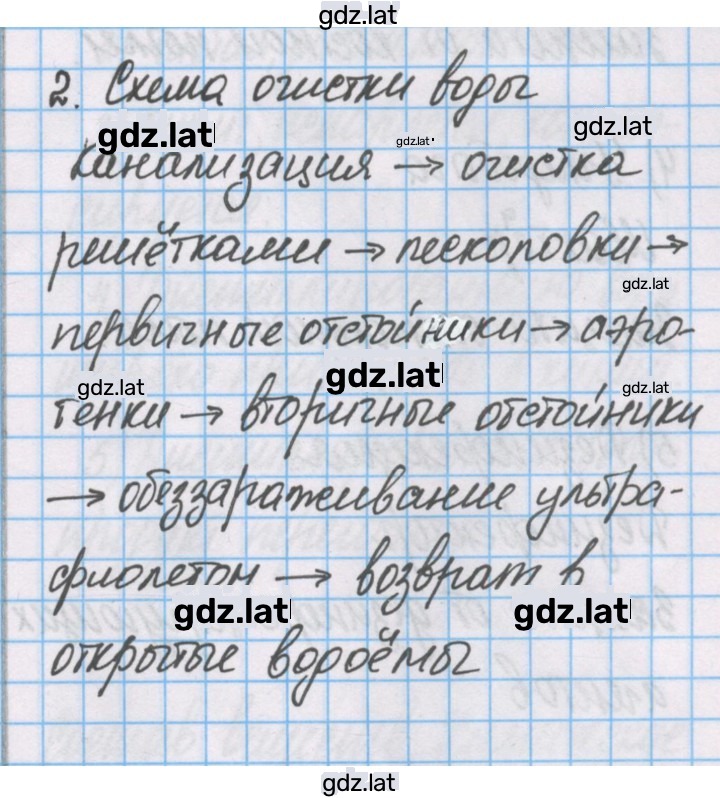 gdz.lat
2. Схема очистки воды
gdz.lat gdz.lat gdz.lat
Канализация → очистка
решётками → песколовки →
gdz.lat
первичные отстойники → аэро-
gdz.lat gdz.lat gdz.lat
тенки → вторичные отстойники
→ обеззараживание ультра-
фиолетом → возврат в
gdz.lat gdz.lat
открытые водоёмы
gdz.lat